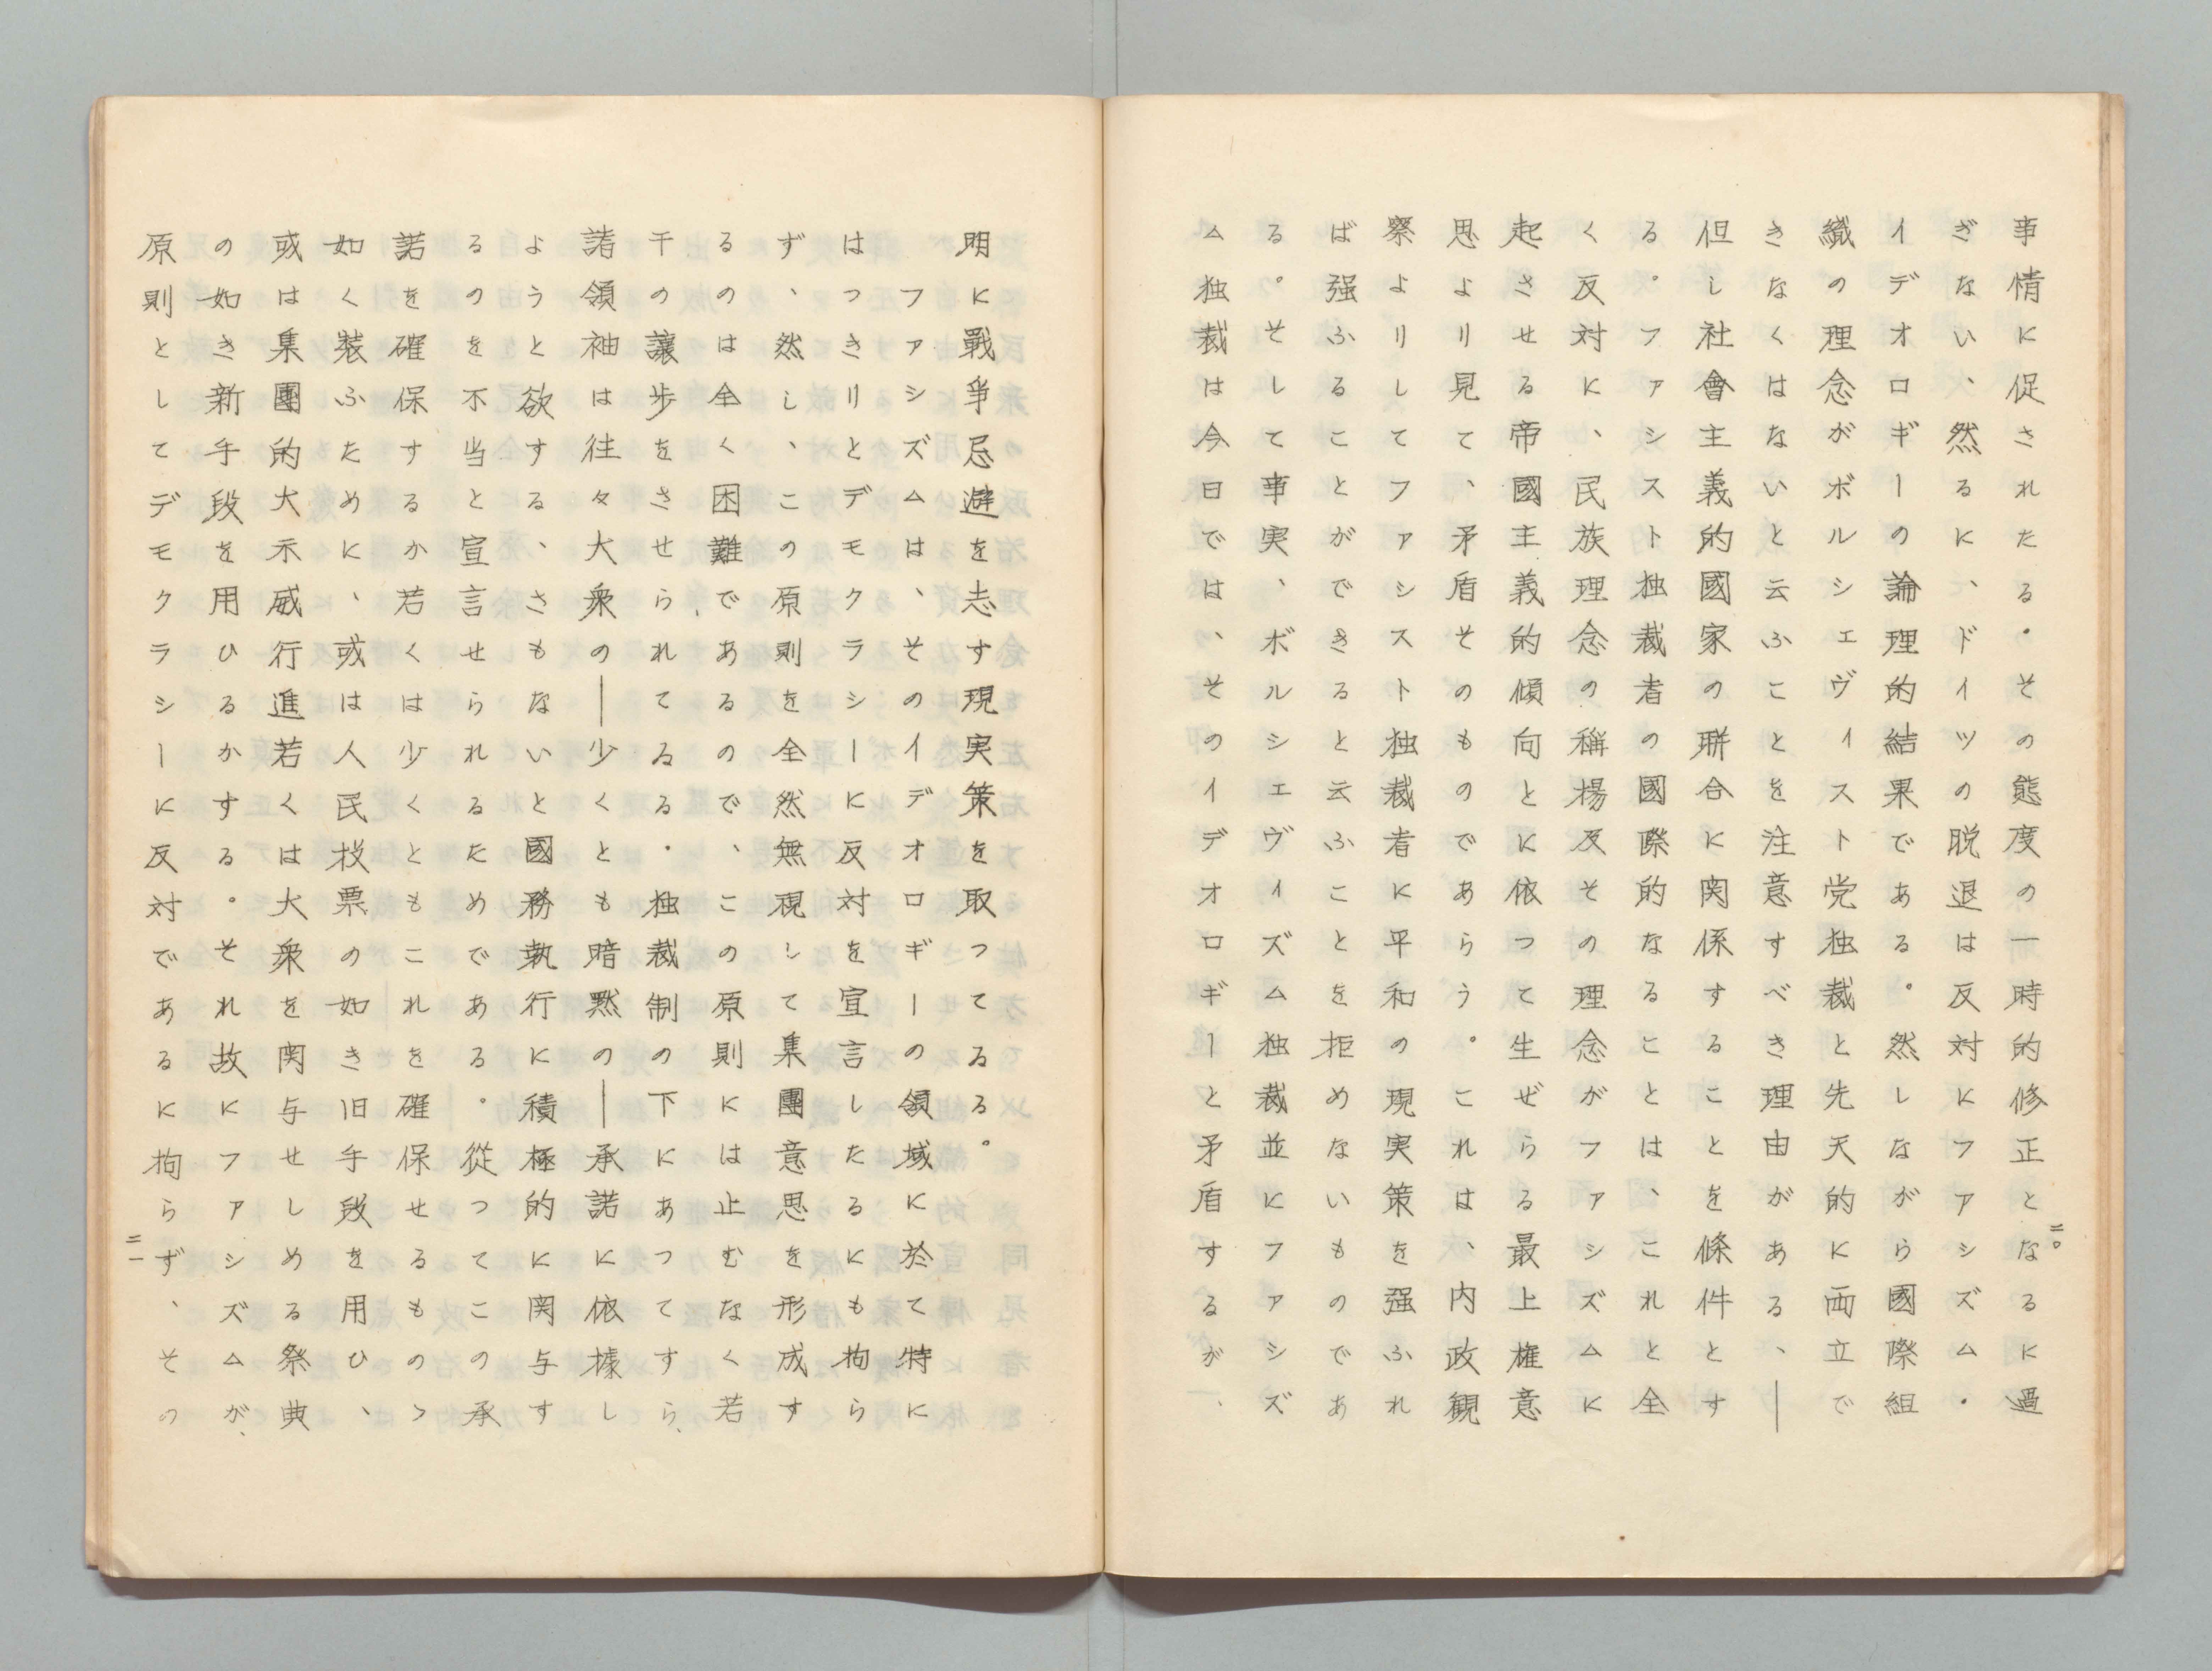 事情に促されたる・その態度の一時的修正となるに過
ぎない、然るに、ドイツの脱退は反対にファシズム・
イデオロギーの論理的結果である。然しながら國際組
織の理念がボルシェヴィスト党独裁と先天的に両立で
きなくはないと云ふことを注意すべき理由がある、―
但し社會主義的國家の聨合に関係することを條件とす
る。ファシスト独裁者の國際的なることは、これと全
く反対に、民族理念の稱揚反その理念がファシズムに
起させる帝國主義的傾向とに依つて生ぜらる最上権意
思より見て、矛盾そのものであらう。これは、内政観
察よりしてファシスト独裁者に平和の現実策を强ふれ
ば强ふることができると云ふことを拒めないものであ
る。そして事実、ボルシェヴィズム独裁並にファシズ
ム独裁は今日では、そのイデオロギーと矛盾するが、
二〇
明に戰爭忌避を志す現実策を取つてゐる。
ファシズムは、そのイデオロギーの領域に於て特に
はつきりとデモクラシーに反対を宣言したるにも拘ら
ず、然し、この原則を全然無視して集團意思を形成す
るのは全く困難であるので、この原則には止むなく若
干の讓歩をさせられてゐる・独裁制の下にあつてすら、
諸領袖は往々大衆の―少くとも暗黙の―承諾に依據し
ようと欲する、さもないと國務執行に積極的に関与す
るのを不当と宣言せられるためである。從つてこの承
諾を確保するか若くは少くともこれを確保せるものゝ
如く裝ふために、或は人民投票の如き旧手段を用ひ、
或は集團的大示威行進若くは大衆を関与せしめる祭典
の如き新手段を用ひるかする。それ故にファシズムが、
原則としてデモクラシーに反対であるに拘らず、その
二一